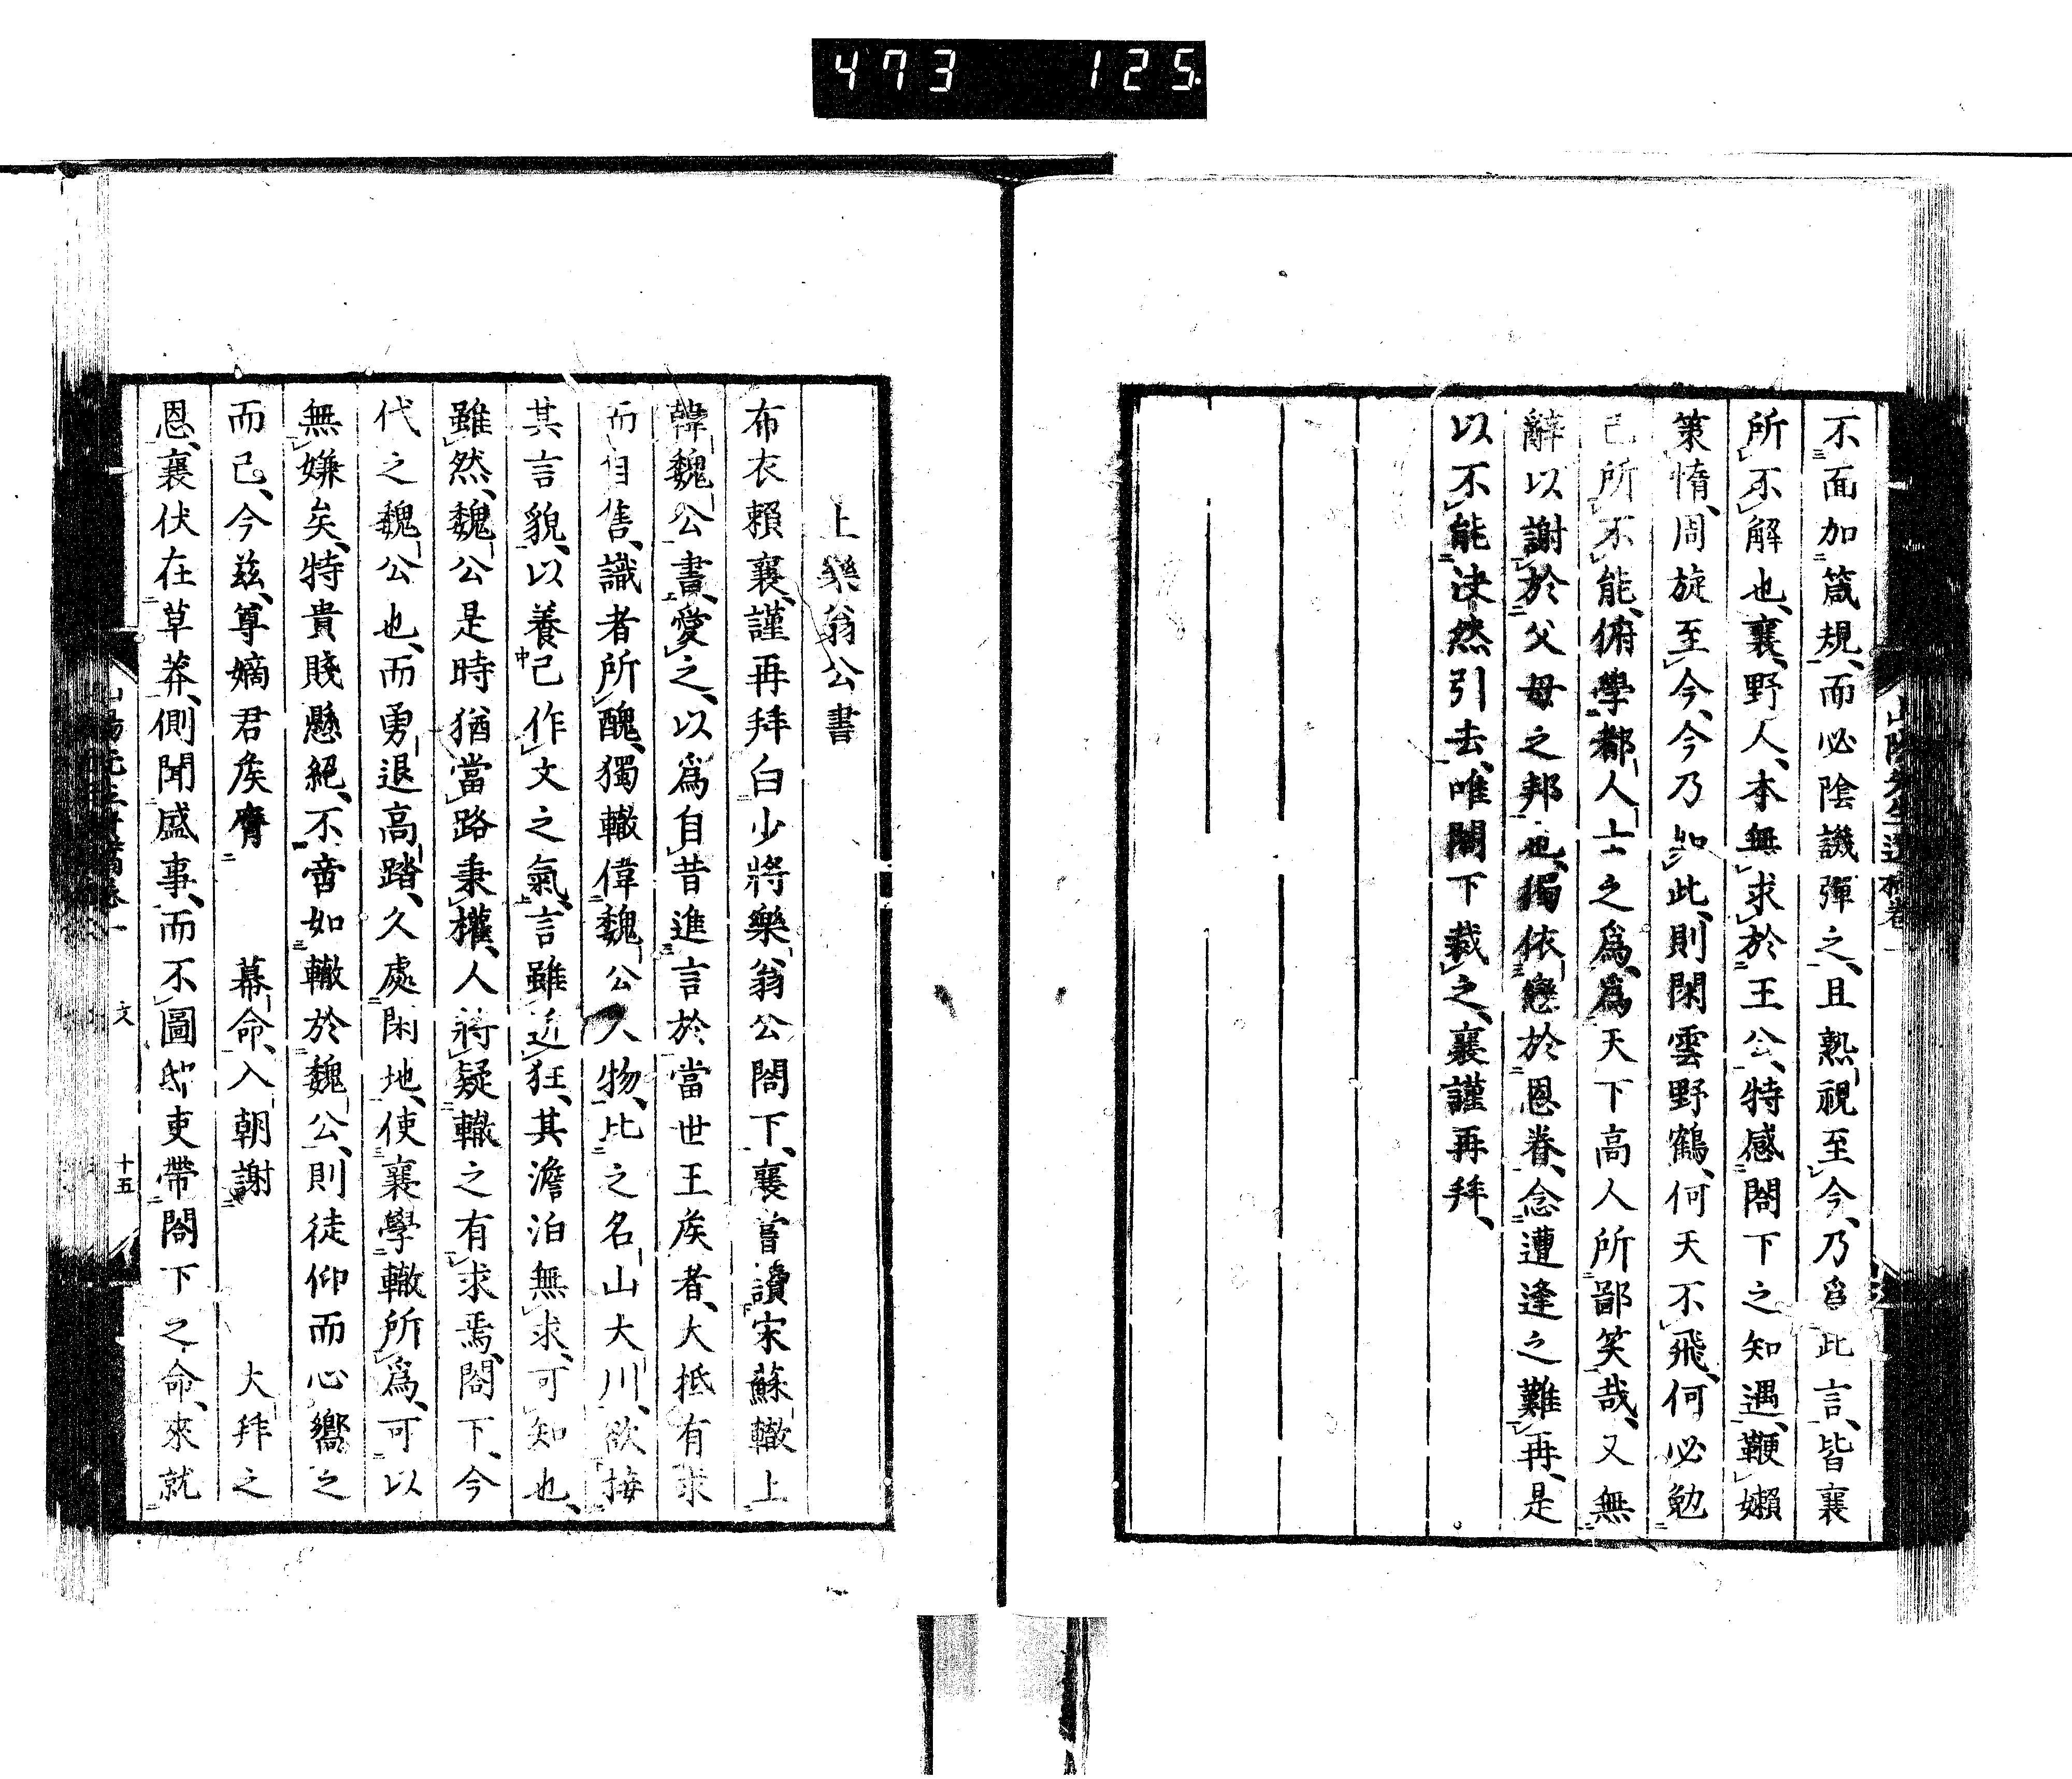 473 125
不面加箴規、而必陰譏彈之、且熟視至今、乃爲此言、皆襄
所不解也、襄、野人、本無求於王公、特感閤下之知遇、鞭嬾
策惰、周旋至今、今乃如此、則閑雲野鶴、何天不飛、何必勉
己所不能、俯學都人士之爲、爲天下高人所鄙笑哉、又無
辭以謝於父母之邦也、獨依戀於恩眷、念遭逢之難再、是
以不能決然引去、唯閤下裁之、襄謹再拜、
上樂翁公書
布衣賴襄、謹再拜白少將樂翁公閤下、襄嘗讀宋蘇轍上
韓魏公書、愛之、以爲自昔進言於當世王矦者、大抵有求
而自售、識者所醜、獨轍偉魏公人物、比之名山大川、欲接
其言貌、以養己作文之氣、言雖近狂、其澹泊無求、可知也、
雖然、魏公是時猶當路秉權、人將疑轍之有求焉、閤下、今
代之魏公也、而勇退高踏、久處閑地、使襄學轍所爲、可以
無嫌矣、特貴賤懸絕、不啻如轍於魏公、則徒仰而心嚮之
而已、今茲、尊嫡君矦膺 幕命、入朝謝 大拜之
恩、襄伏在草莽、側聞盛事、而不圖邸吏帶閤下之命、來就
文 十五